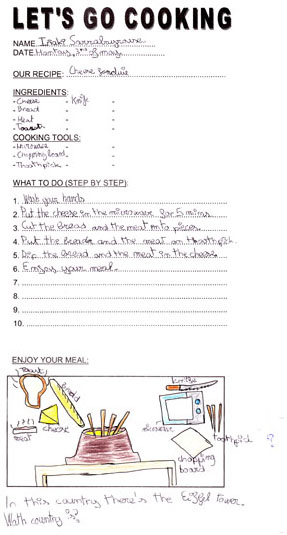 LET'S GO COOKING
NAME
DATE
OUR RECIPE: Cheese fondue
INGREDIENTS:
- Cheese - Knife -
- Bread - -
- Meat - -
- Toast - -
COOKING TOOLS:
- -
- Chopping board - -
- Thoothpick - -
WHAT TO DO (STEP BY STEP):
1. Wash your hands
2. Put the cheese in the microwave for 5 mins
3. Cut the bread and the meat into pieces.
4. Put the bread and the meat on thoothpick
5. Dip the bread and the meat in the cheese
6. Enjoy your meal.
7.
8.
9.
10.
ENJOY YOUR MEAL:
toast bread knife
cheese
meat toothpick ?
chopping
board
In this country there's the Eiffel tower.
Wath country ???